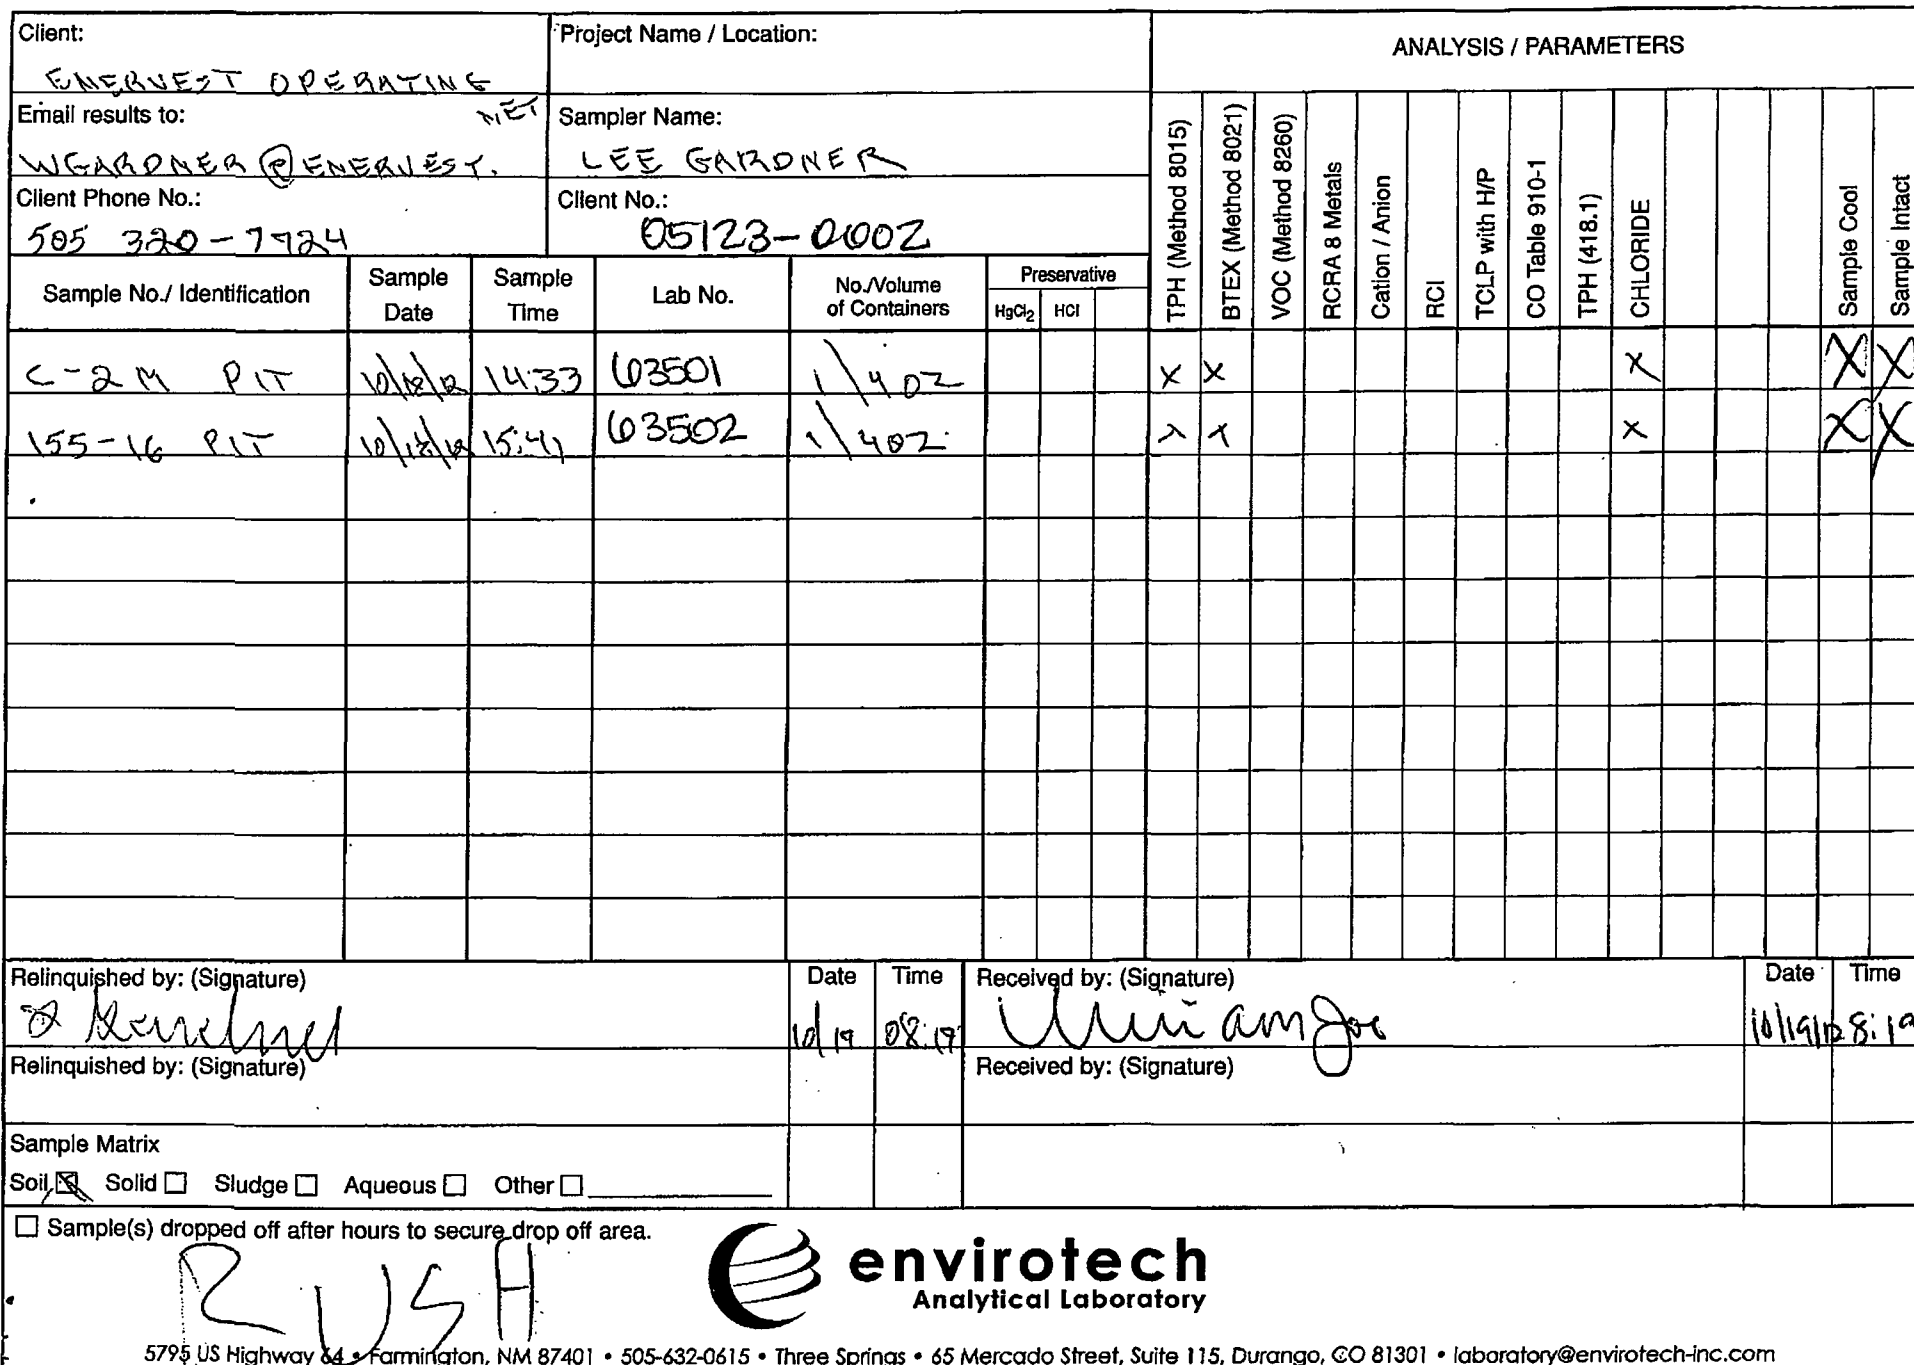 Client:
ENERVEST OPERATING
Project Name / Location:
ANALYSIS / PARAMETERS
Email results to:
WGARDNER@ENERVEST.
NET
Sampler Name:
LEE GARDNER
Client Phone No.:
505 320-7724
Client No.:
05123-0002
Sample No./ Identification
Sample Date
Sample Time
Lab No.
No./Volume of Containers
Preservative
HgCl₂
HCl
TPH (Method 8015)
BTEX (Method 8021)
VOC (Method 8260)
RCRA 8 Metals
Cation / Anion
RCI
TCLP with H/P
CO Table 910-1
TPH (418.1)
CHLORIDE
Sample Cool
Sample Intact
C-2M PIT 10/18/12 14:33 63501 1/4oz X X X X X
155-16 PIT 10/18/12 15:41 63502 1/4oz X X X X X
Relinquished by: (Signature)
Date
Time
Received by: (Signature)
Date
Time
10/19 08:19
10/19/12 8:19
Relinquished by: (Signature)
Received by: (Signature)
Sample Matrix
Soil ☒ Solid ☐ Sludge ☐ Aqueous ☐ Other ☐
☐ Sample(s) dropped off after hours to secure drop off area.
RUSH
envirotech
Analytical Laboratory
5795 US Highway 64 • Farmington, NM 87401 • 505-632-0615 • Three Springs • 65 Mercado Street, Suite 115, Durango, CO 81301 • laboratory@envirotech-inc.com